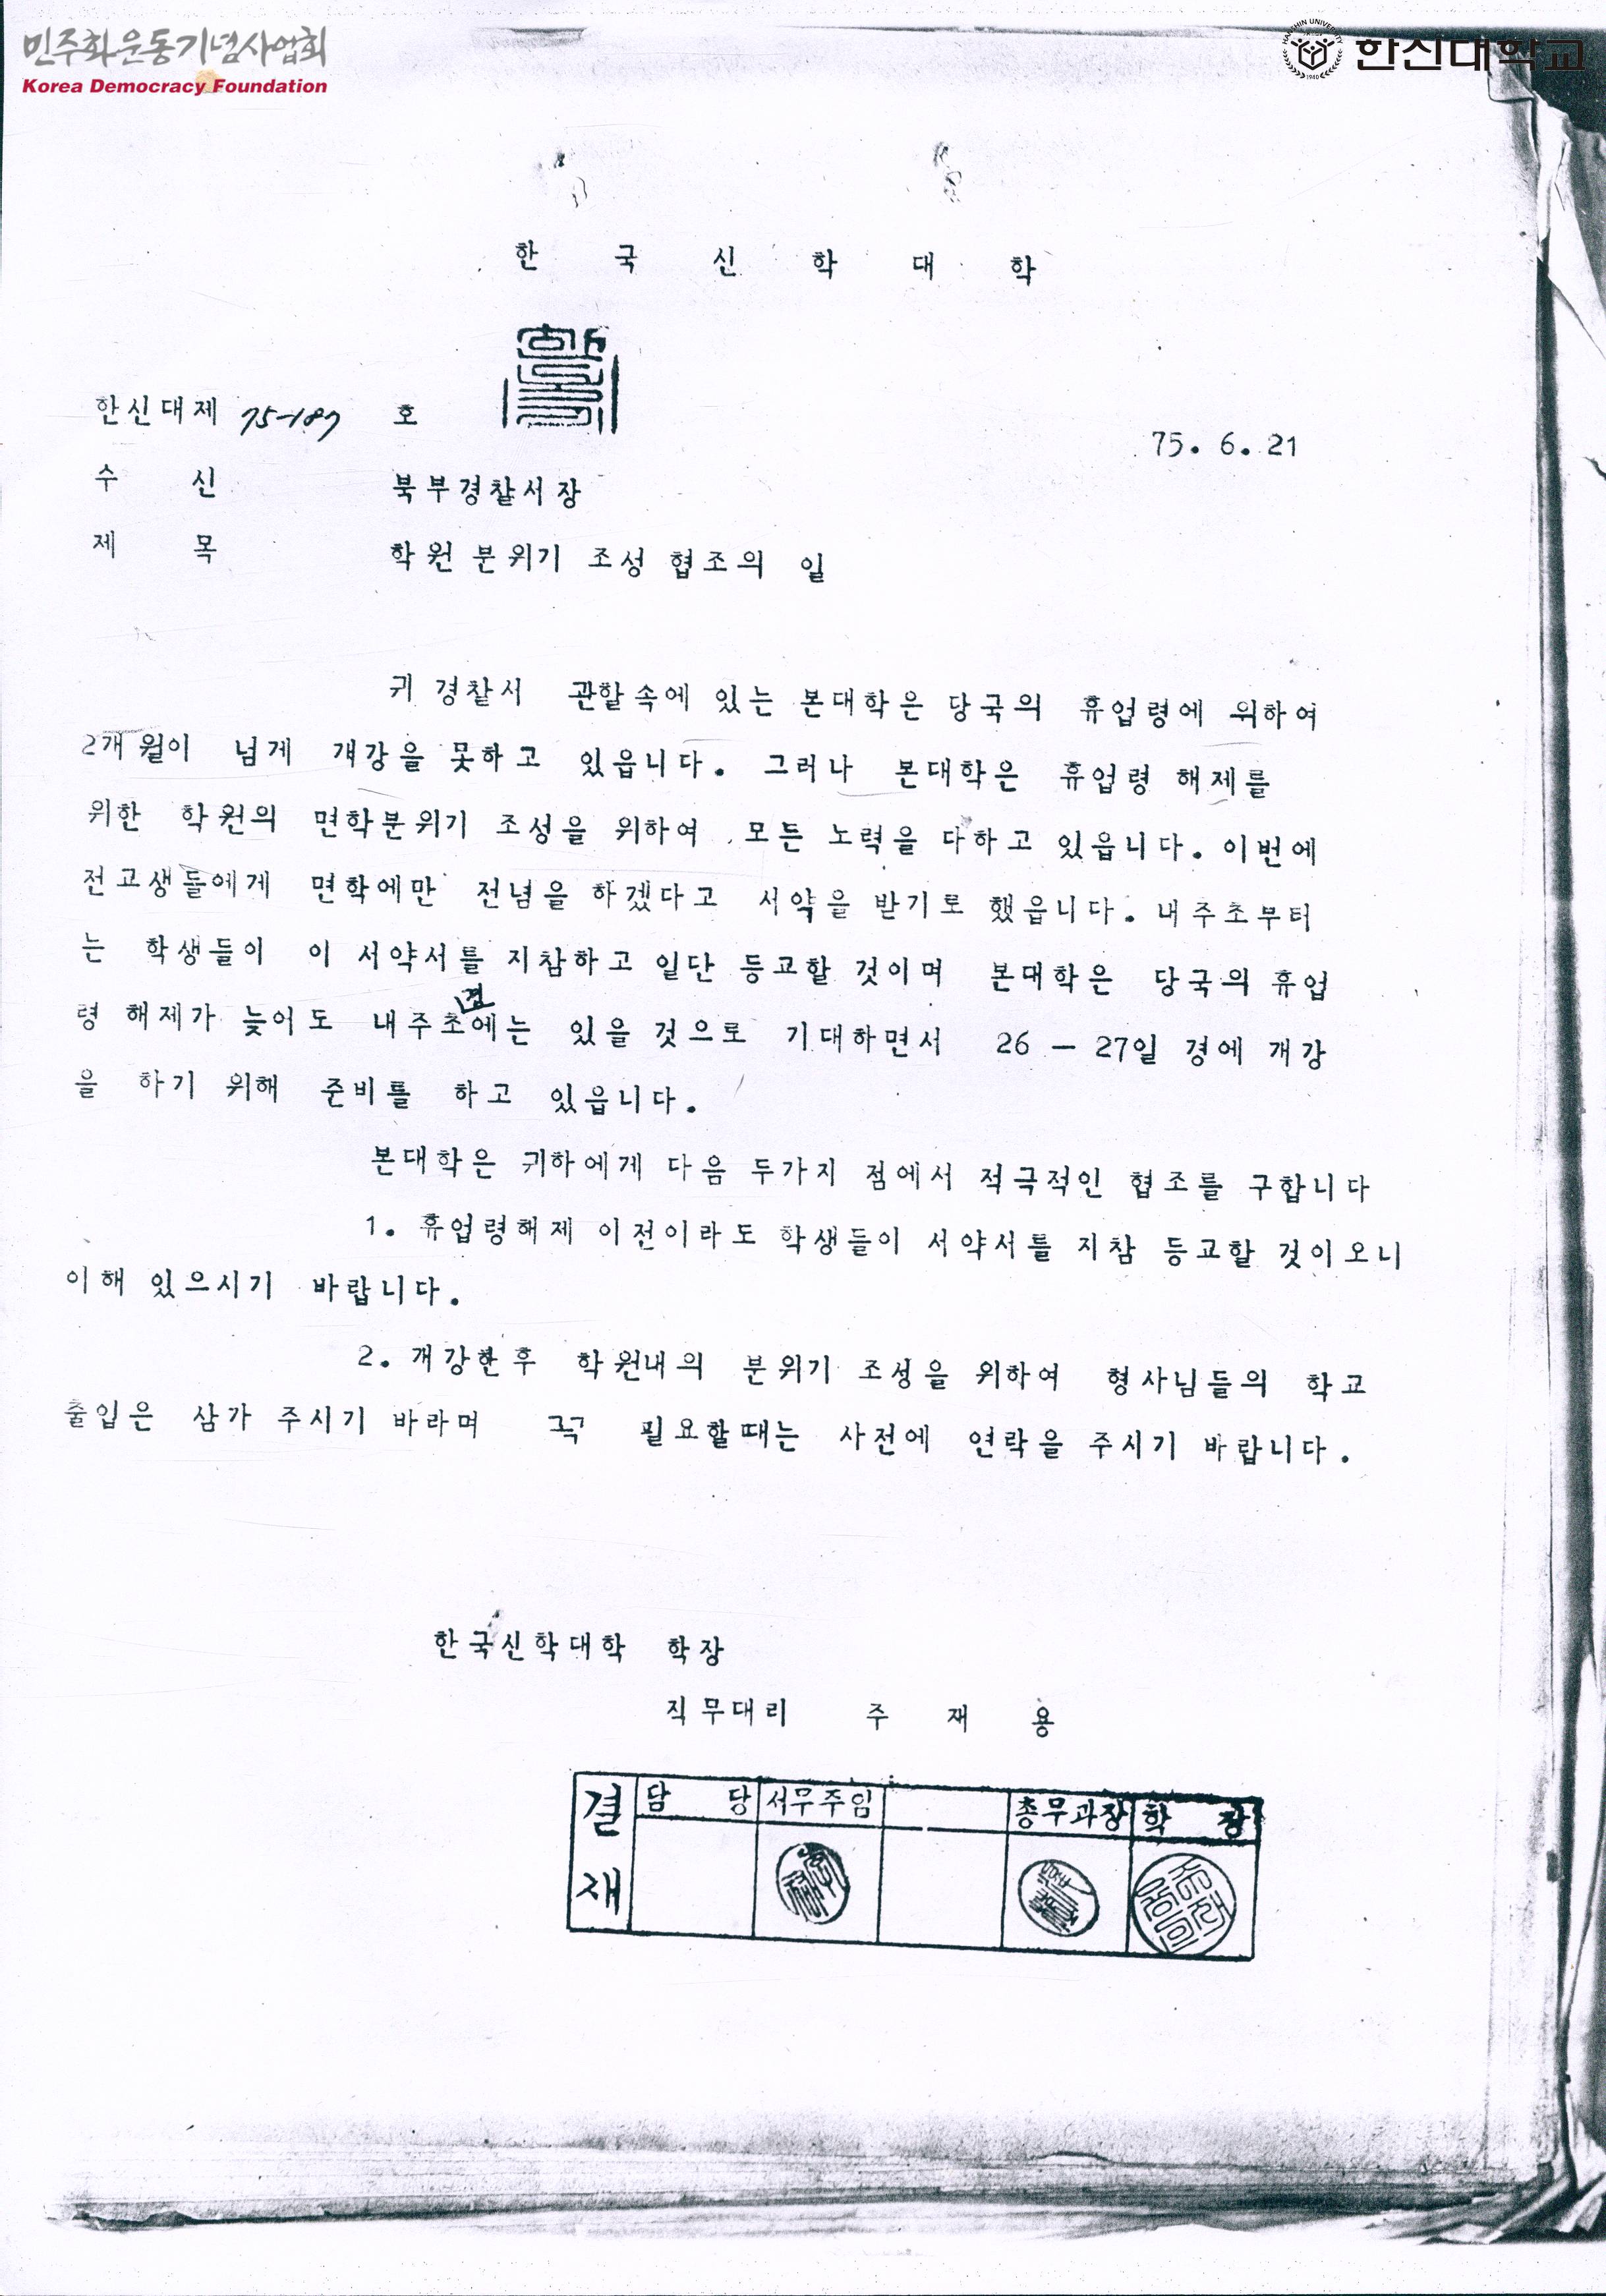 민주화운동기념사업회
Korea Democracy Foundation
HANSHIN UNIVERSITY
1940
한신대학교
한 국 신 학 대 학
한신대제 75-187 호
75. 6. 21
수 신 북부경찰서장
제 목 학원 분위기 조성 협조의 일
귀 경찰서 관할속에 있는 본대학은 당국의 휴업령에 위하여
2개월이 넘게 개강을 못하고 있읍니다. 그러나 본대학은 휴업령 해제를
위한 학원의 면학분위기 조성을 위하여 모든 노력을 다하고 있읍니다. 이번에
전교생들에게 면학에만 전념을 하겠다고 서약을 받기로 했읍니다. 내주초부터
는 학생들이 이 서약서를 지참하고 일단 등교할 것이며 본대학은 당국의 휴업
령 해제가 늦어도 내주초경에는 있을 것으로 기대하면서 26 - 27일 경에 개강
을 하기 위해 준비를 하고 있읍니다.
본대학은 귀하에게 다음 두가지 점에서 적극적인 협조를 구합니다
1. 휴업령해제 이전이라도 학생들이 서약서를 지참 등교할 것이오니
이해 있으시기 바랍니다.
2. 개강한후 학원내의 분위기 조성을 위하여 형사님들의 학교
출입은 삼가 주시기 바라며 꼭 필요할때는 사전에 연락을 주시기 바랍니다.
한국신학대학 학장
직무대리 주 재 용
결재 담 당 서무주임 총무과장 학 장